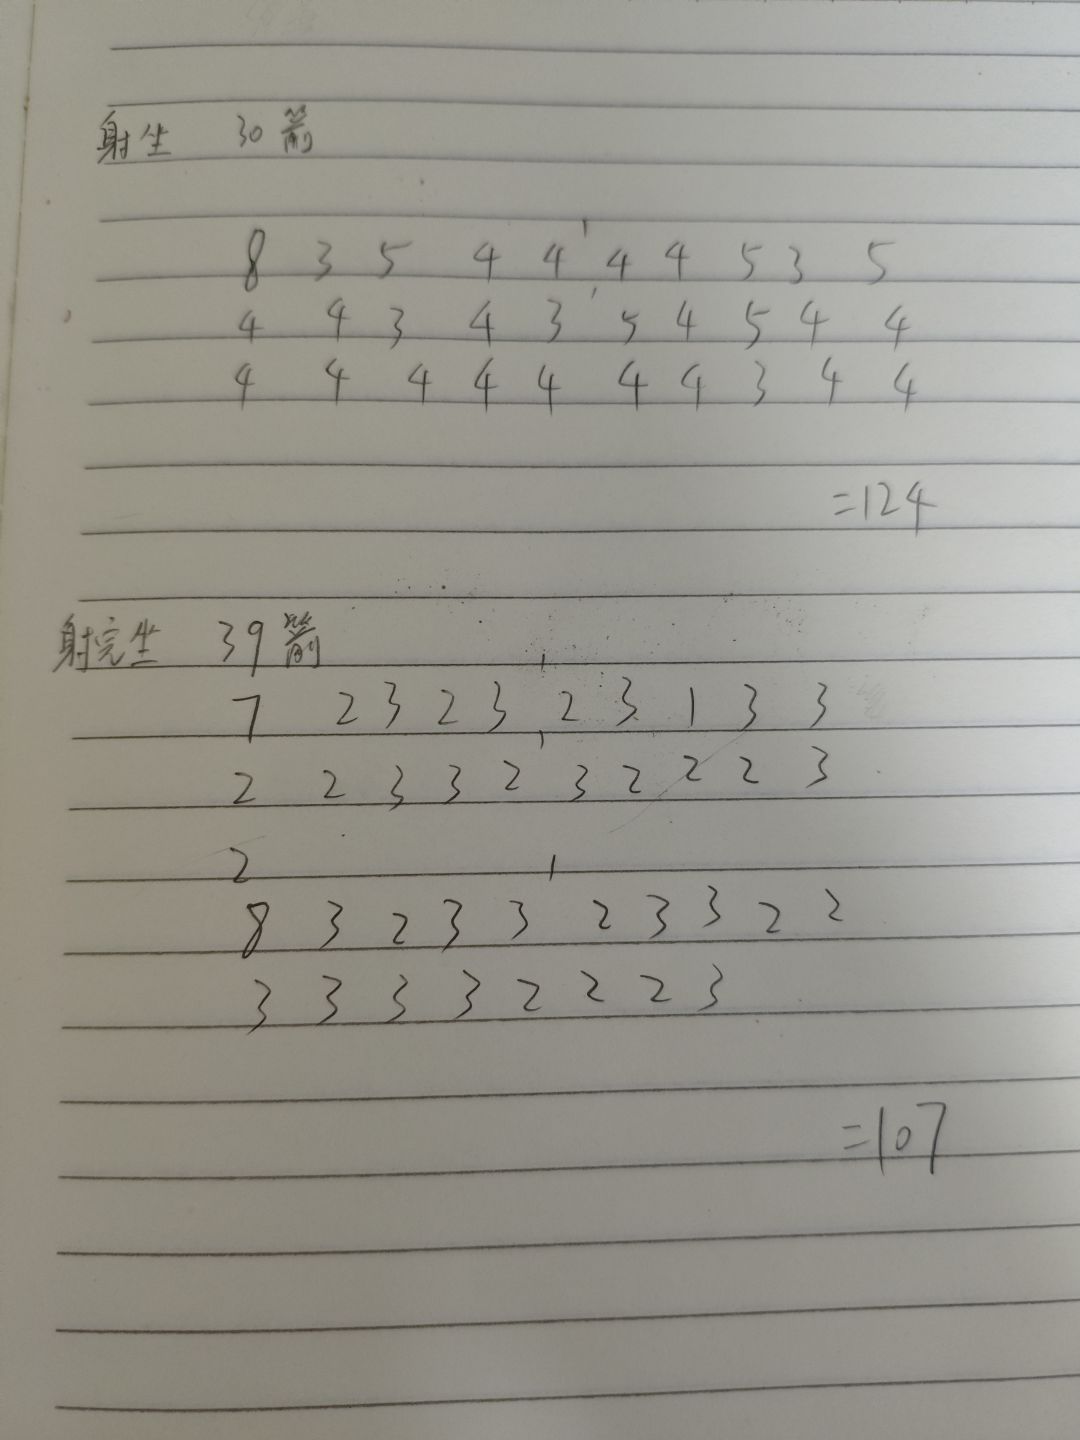 射坐 30箭
8 3 5 4 4 ' 4 4 5 3 5
4 4 3 4 3 ' 5 4 5 4 4
4 4 4 4 4 4 4 3 4 4
=124
射完坐 39箭
7 2 3 2 3 ' 2 3 1 3 3
2 2 3 3 2 ' 3 2 2 2 3
2
8 3 2 3 3 ' 2 3 3 2 2
3 3 3 3 2 2 2 3
=107